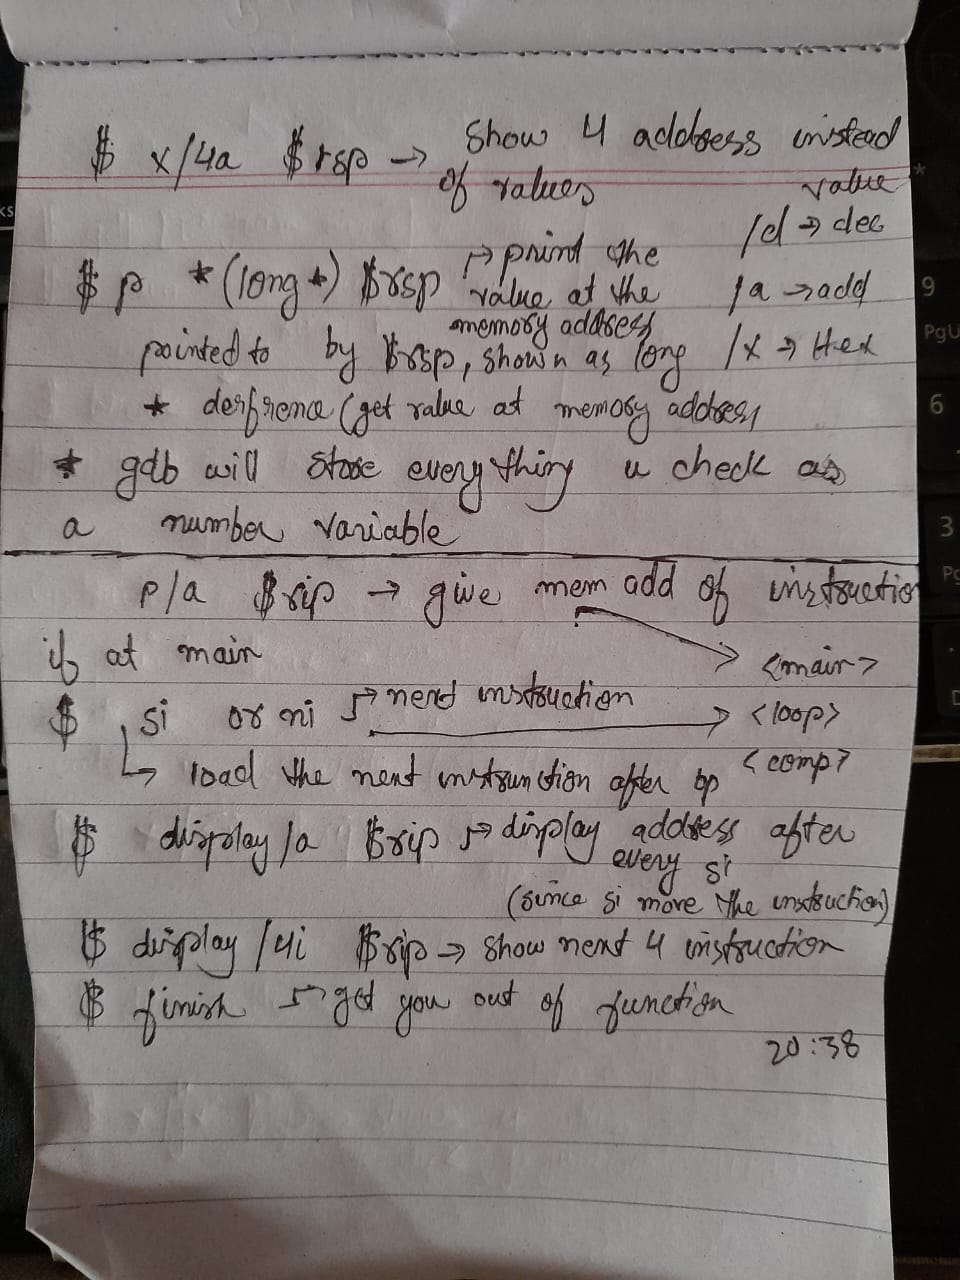 $ x/4a $rsp → Show 4 address instead
of values value
/d → dec
$ p *(long*) $rsp → print the
value at the /a → add
memory address
pointed to by $rsp, shown as long /x → Hex
* derfrence (get value at memory address
* gdb will store everything u check as
a number variable
p/a $rip → give mem add of instruction
if at main <main>
$ si or ni → next instruction <loop>
<comp>
↳ load the next instrunction after op
$ display/a $rip → display address after
every si
(since si move the instruction)
$ display /4i $rip → show next 4 instruction
$ finish → get you out of function
20:38
ks
9
PgU
6
3